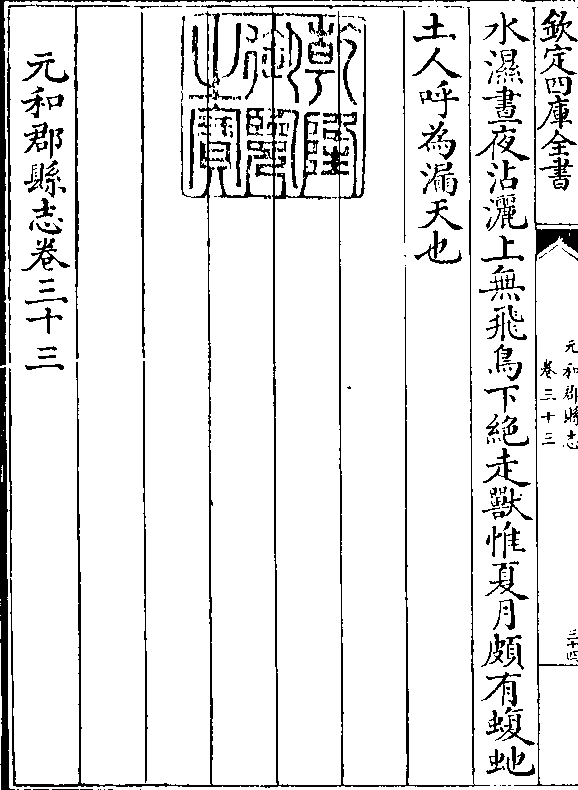 欽定四庫全書
元和郡縣志
卷三十三
三十四
水濕晝夜沾灑上無飛鳥下絶走獸惟夏月頗有蝮虵
土人呼為漏天也
乾隆御覽之寶
元和郡縣志卷三十三